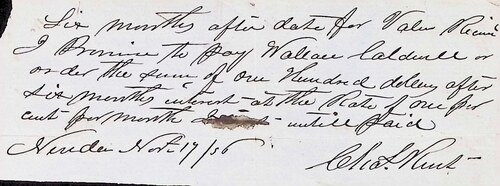 Six months after date for Valu Reciev
I Promise to pay Wallace Caldwell or
order the sum of one Hundred dollers after
six months interest at the Rate of one per
cent per month untill paid
Nov. 17/56
Chas Kent